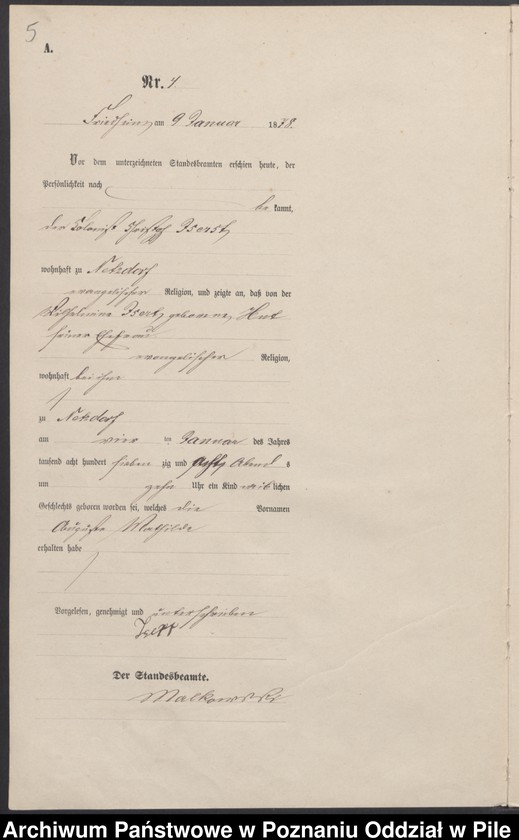 5
A.
Nr. 4
Friedheim, am 9 Januar 1878.
Vor dem unterzeichneten Standesbeamten erschien heute, der
Persönlichkeit nach
be kannt,
der Kolonist
wohnhaft zu Netzdorf
evangelischer Religion, und zeigte an, daß von der
Wilhelmine geborene
seiner Ehefrau
evangelischer Religion,
wohnhaft bei ihm
zu Netzdorf
am vier ten Januar des Jahres
tausend acht hundert sieben zig und acht Abend s
um zehn Uhr ein Kind weib lichen
Geschlechts geboren worden sei, welches die Vornamen
Auguste Mathilde
erhalten habe
Vorgelesen, genehmigt und unterschrieben
Der Standesbeamte.
Malkowski
Archiwum Państwowe w Poznaniu Oddział w Pile